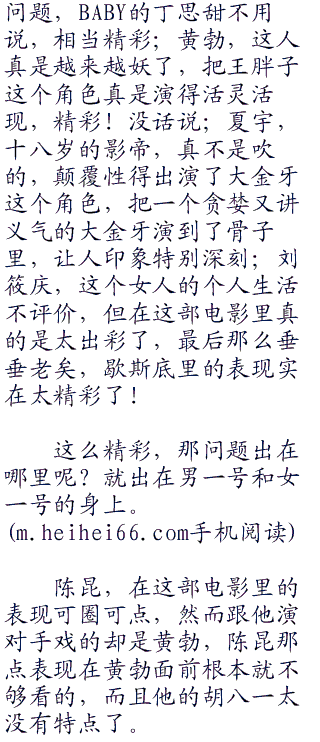 问题，BABY的丁思甜不用
说，相当精彩；黄勃，这人
真是越来越妖了，把王胖子
这个角色真是演得活灵活
现，精彩！没话说；夏宇，
十八岁的影帝，真不是吹
的，颠覆性得出演了大金牙
这个角色，把一个贪婪又讲
义气的大金牙演到了骨子
里，让人印象特别深刻；刘
筱庆，这个女人的个人生活
不评价，但在这部电影里真
的是太出彩了，最后那么垂
垂老矣，歇斯底里的表现实
在太精彩了！
这么精彩，那问题出在
哪里呢？就出在男一号和女
一号的身上。
(m.heihei66.com手机阅读)
陈昆，在这部电影里的
表现可圈可点，然而跟他演
对手戏的却是黄勃，陈昆那
点表现在黄勃面前根本就不
够看的，而且他的胡八一太
没有特点了。